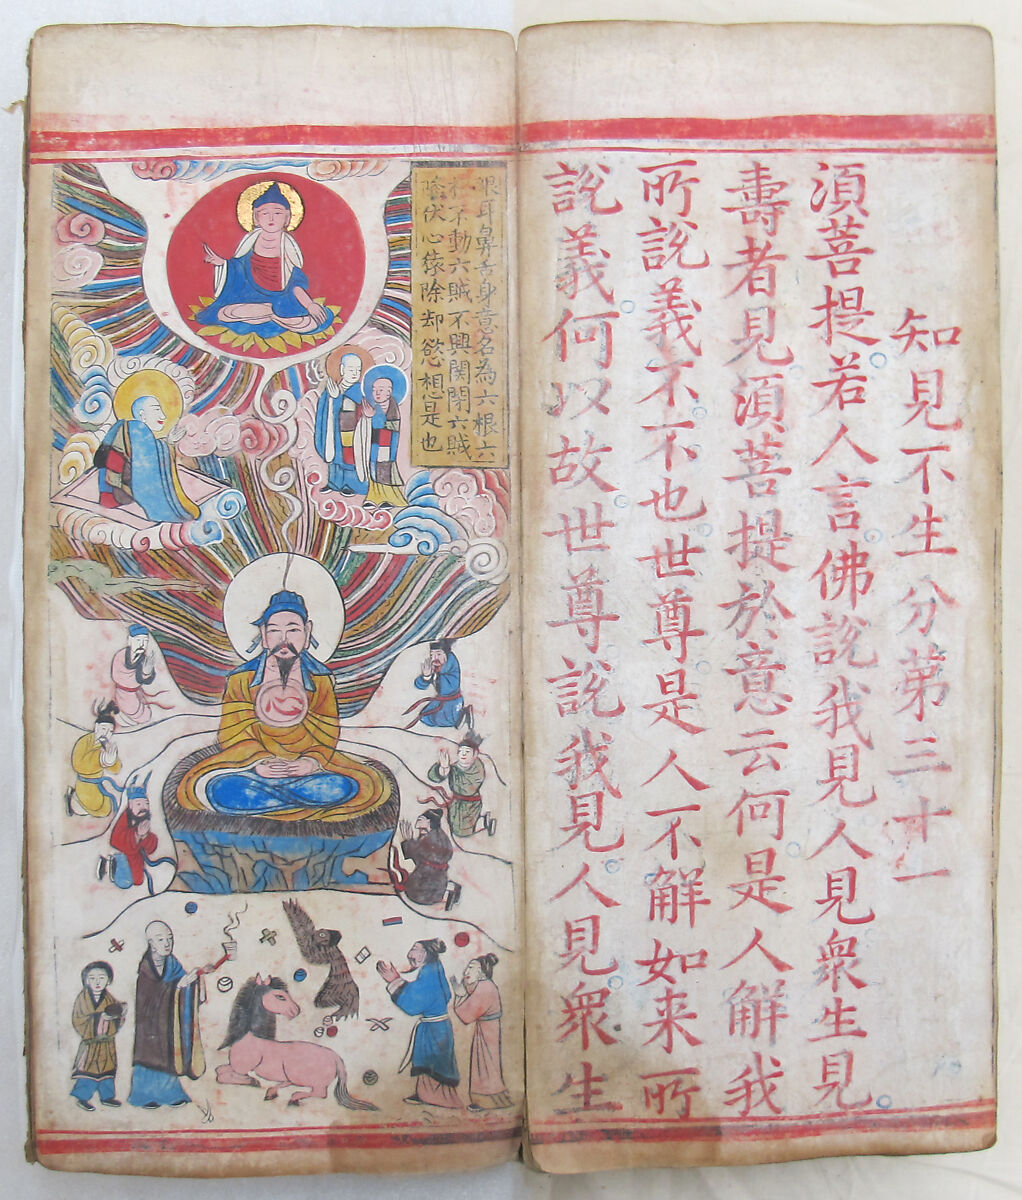 知見不生分苐三十一
湏菩提若人言佛說我見人見衆生見
壽者見湏菩提於意云何是人解我
所說義不不也世尊是人不解如来所
說義何以故世尊說我見人見衆生
眼耳鼻舌身意名為六根六
根不動六賊不興関閉六賊
陰伏心猿除却慾想是也